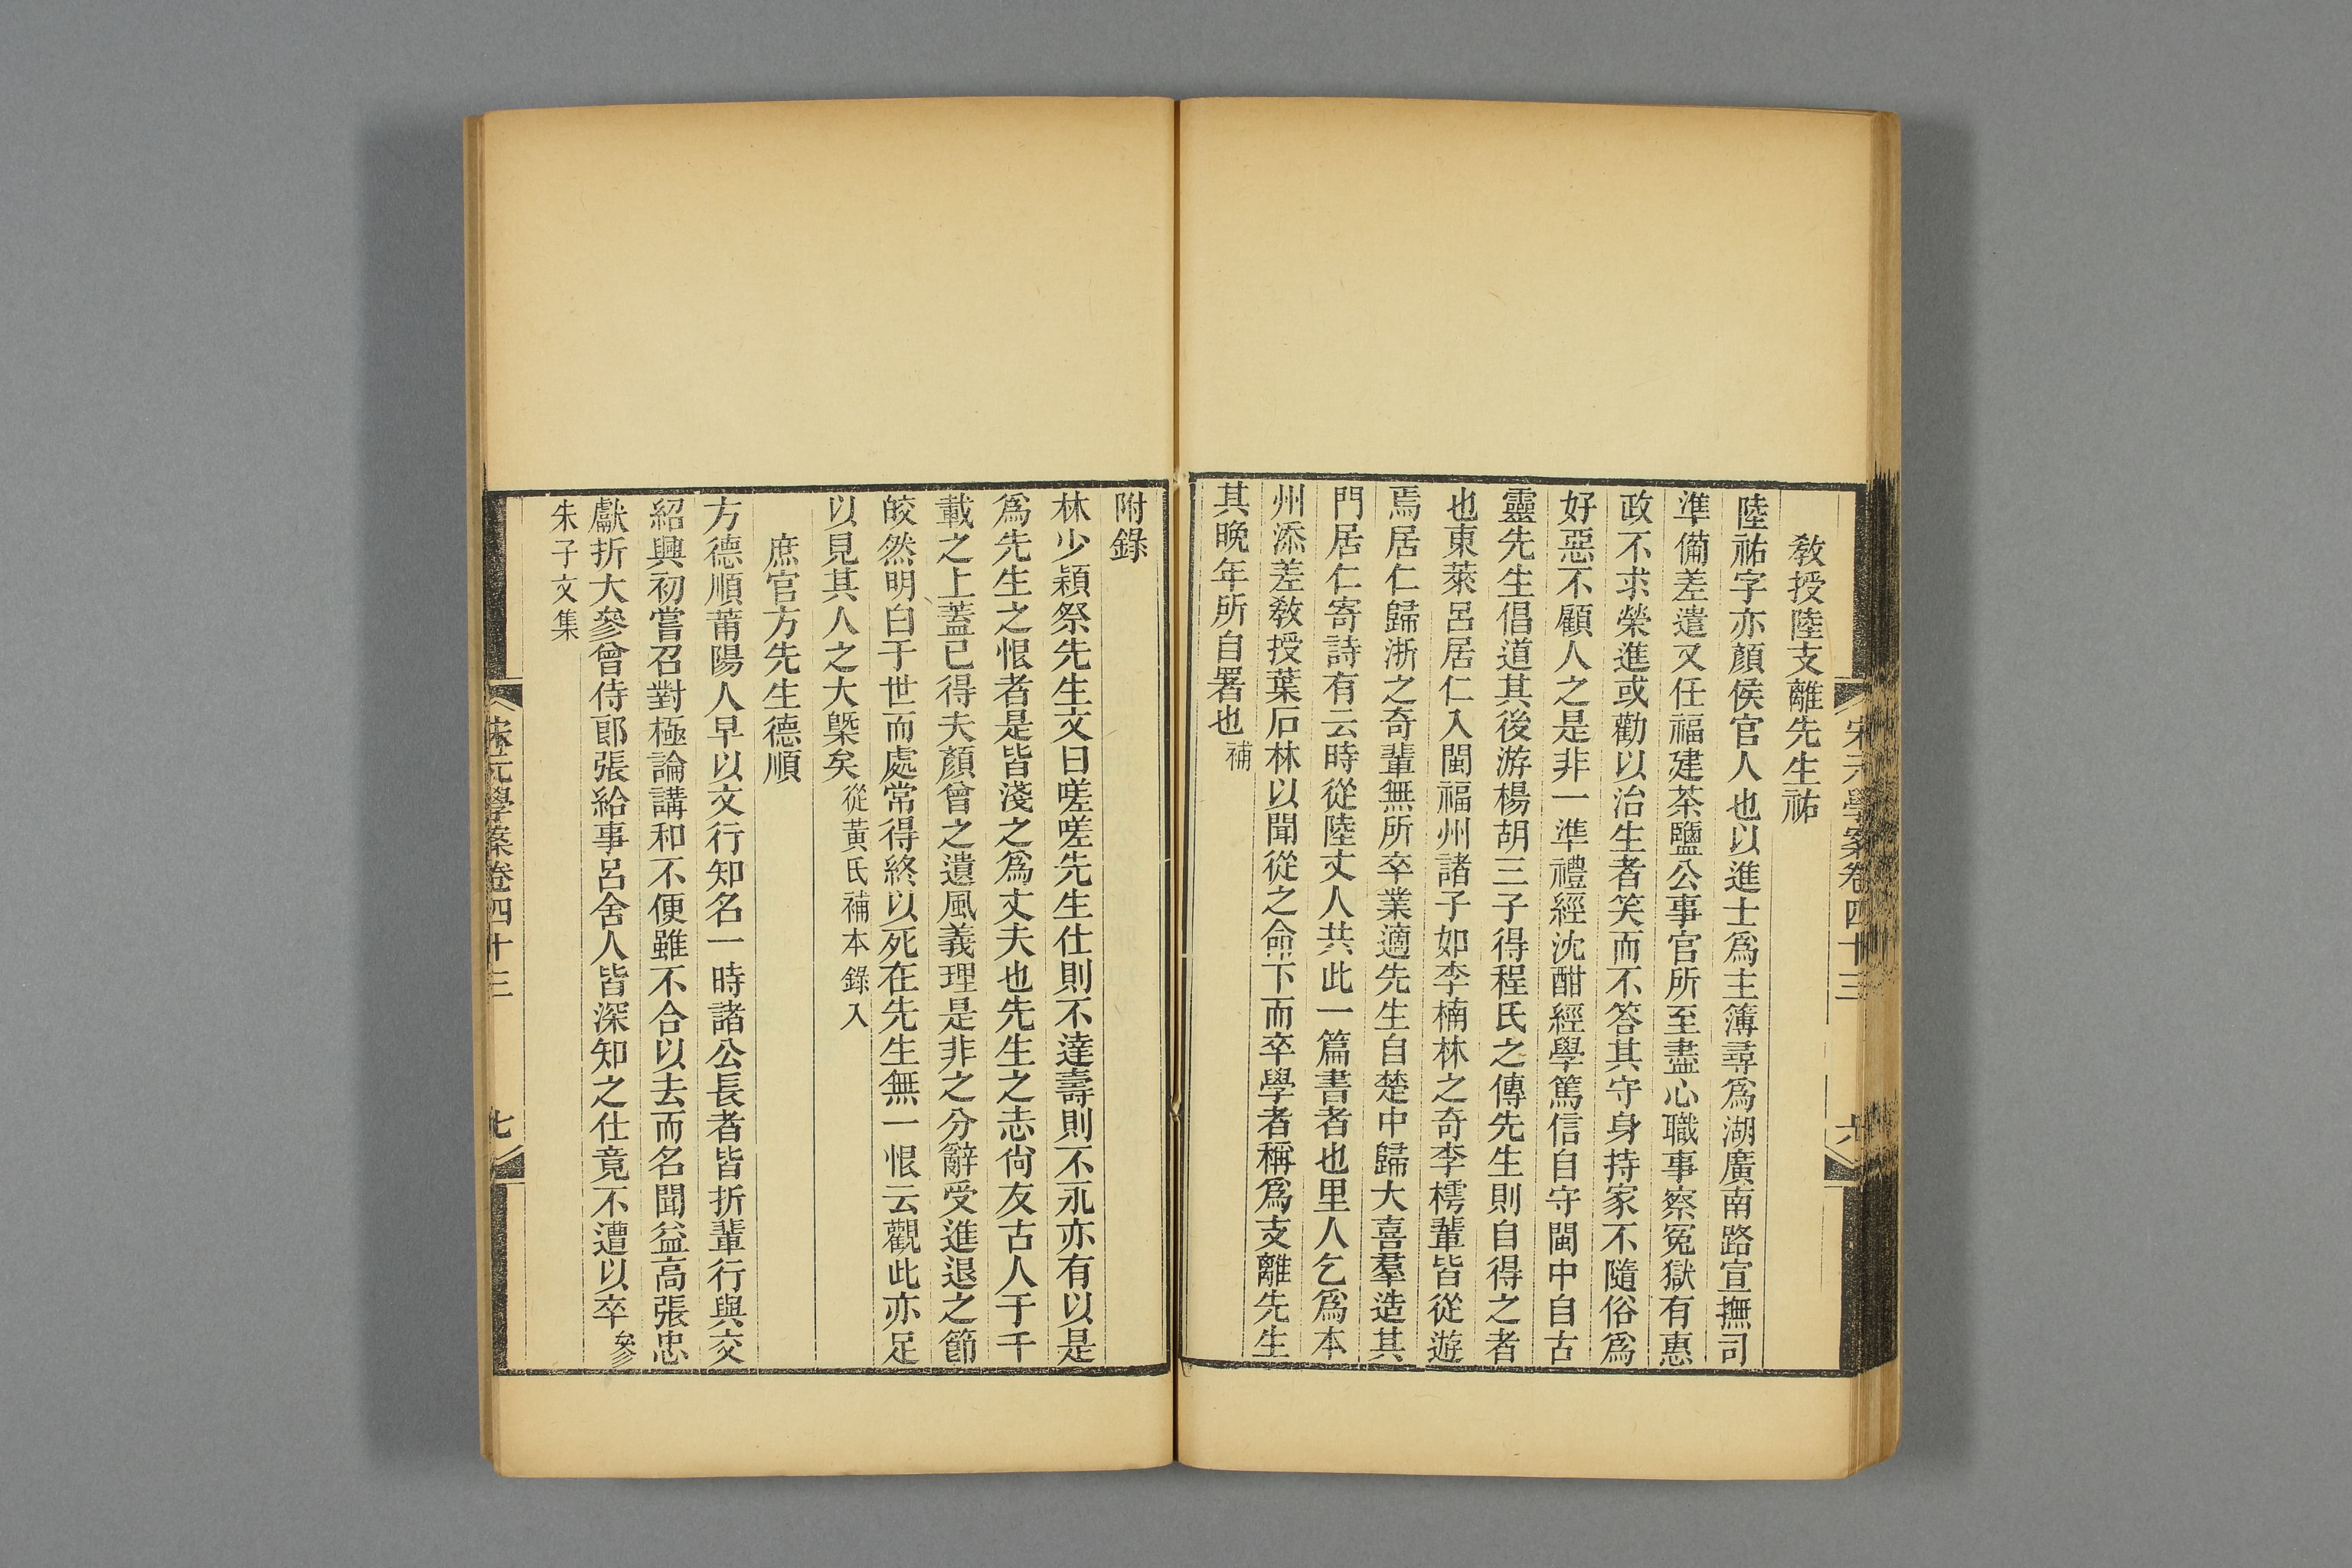 宋元學案卷四十三
六
教授陸支離先生祐
陸祐字亦顔侯官人也以進士爲主簿尋爲湖廣南路宣撫司
準備差遣又任福建茶鹽公事官所至盡心職事察冤獄有惠
政不求榮進或勸以治生者笑而不答其守身持家不隨俗爲
好惡不顧人之是非一準禮經沈酣經學篤信自守閩中自古
靈先生倡道其後游楊胡三子得程氏之傳先生則自得之者
也東萊呂居仁入閩福州諸子如李楠林之奇李樗輩皆從遊
焉居仁歸浙之奇輩無所卒業適先生自楚中歸大喜羣造其
門居仁寄詩有云時從陸丈人共此一篇書者也里人乞爲本
州添差敎授葉石林以聞從之命下而卒學者稱爲支離先生
其晩年所自署也補
附錄
林少穎祭先生文曰嗟嗟先生仕則不達壽則不永亦有以是
爲先生之恨者是皆淺之爲丈夫也先生之志尙友古人于千
載之上蓋已得夫顏曾之遺風義理是非之分辭受進退之節
皎然明白于世而處常得終以死在先生無一恨云觀此亦足
以見其人之大槩矣從黃氏補本錄入
庶官方先生德順
方德順莆陽人早以文行知名一時諸公長者皆折輩行與交
紹興初嘗召對極論講和不便雖不合以去而名聞益高張忠
獻折大參曾侍郎張給事呂舍人皆深知之仕竟不遭以卒參
朱子文集
宋元學案卷四十三
七